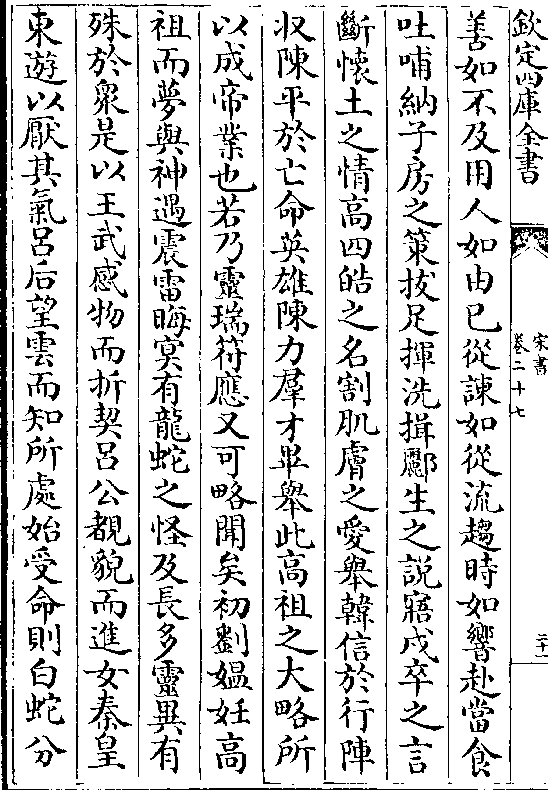 欽定四庫全書
宋書
卷二十七
二十一
善如不及用人如由已從諫如從流趨時如響赴當食
吐哺納子房之策拔足揮洗揖酈生之說寤戍卒之言
斷懷土之情高四皓之名割肌膚之愛舉韓信於行陣
收陳平於亡命英雄陳力羣才畢舉此高祖之大略所
以成帝業也若乃靈瑞符應又可略聞矣初劉媪妊高
祖而夢與神遇震雷晦冥有龍蛇之怪及長多靈異有
殊於衆是以王武感物而折契呂公覩貌而進女秦皇
東遊以厭其氣呂后望雲而知所處始受命則白蛇分